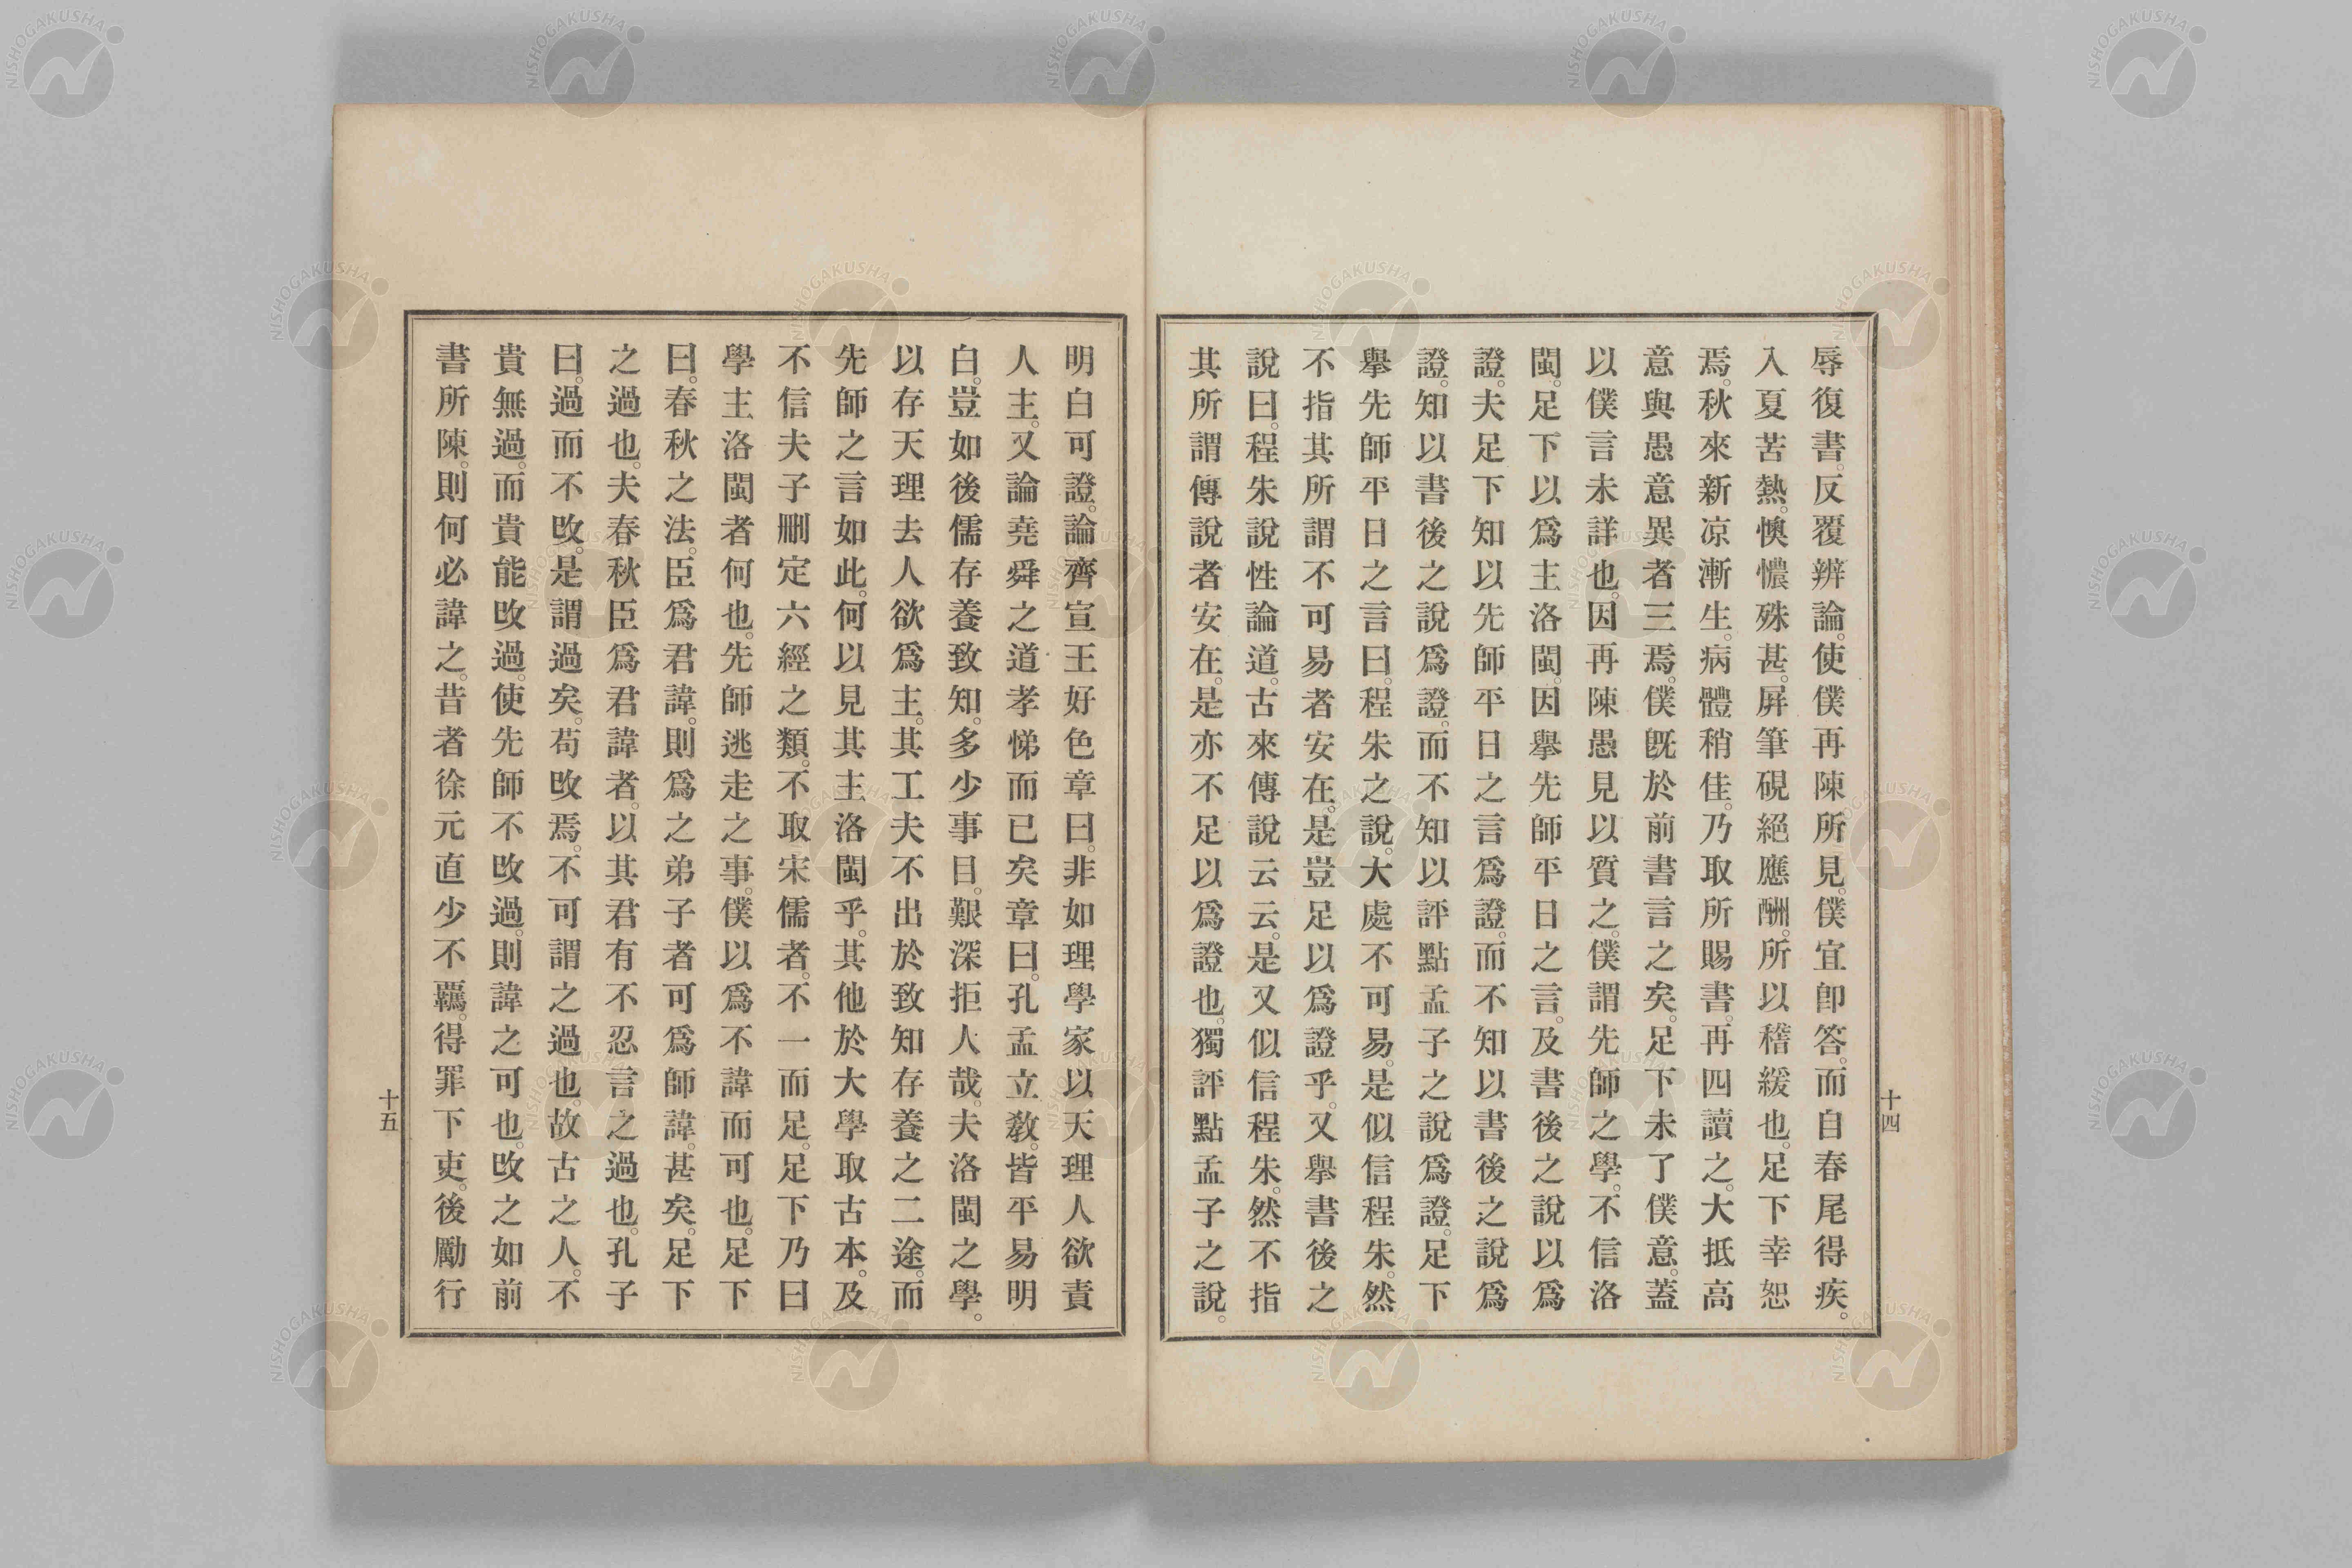 辱復書。反覆辨論。使僕再陳所見。僕宜卽答。而自春尾得疾。
入夏苦熱。懊憹殊甚。屏筆硯絕應酬。所以稽緩也。足下幸恕
焉。秋來新凉漸生。病體稍佳。乃取所賜書。再四讀之。大抵高
意與愚意異者三焉。僕旣於前書言之矣。足下未了僕意。蓋
以僕言未詳也。因再陳愚見以質之。僕謂先師之學。不信洛
閩。足下以爲主洛閩。因擧先師平日之言。及書後之說以爲
證。夫足下知以先師平日之言爲證。而不知以書後之說爲
證。知以書後之說爲證。而不知以評點孟子之說爲證。足下
擧先師平日之言曰。程朱之說。大處不可易。是似信程朱。然
不指其所謂不可易者安在。是豈足以爲證乎。又擧書後之
說曰。程朱說性論道。古來傳說云云。是又似信程朱。然不指
其所謂傳說者安在。是亦不足以爲證也。獨評點孟子之說。
十四
明白可證。論齊宣王好色章曰。非如理學家以天理人欲責
人主。又論堯舜之道孝悌而已矣章曰。孔孟立敎。皆平易明
白。豈如後儒存養致知。多少事目。艱深拒人哉。夫洛閩之學。
以存天理去人欲爲主。其工夫不出於致知存養之二途。而
先師之言如此。何以見其主洛閩乎。其他於大學取古本。及
不信夫子刪定六經之類。不取宋儒者。不一而足。足下乃曰
學主洛閩者何也。先師逃走之事。僕以爲不諱而可也。足下
曰。春秋之法。臣爲君諱。則爲之弟子者可爲師諱。甚矣。足下
之過也。夫春秋臣爲君諱者。以其君有不忍言之過也。孔子
曰。過而不攺。是謂過矣。苟攺焉。不可謂之過也。故古之人。不
貴無過。而貴能攺過。使先師不攺過。則諱之可也。攺之如前
書所陳。則何必諱之。昔者徐元直少不覊。得罪下吏。後勵行
十五
NISHOGAKUSHA